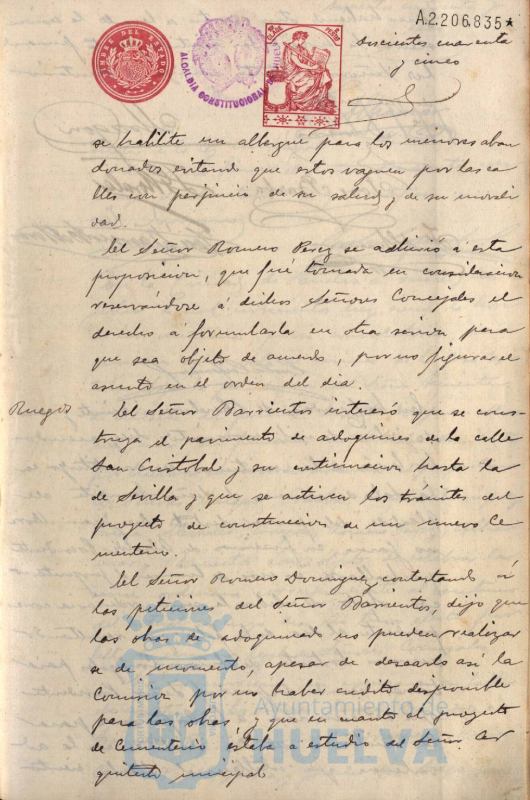 A.2.206.835*
TIMBRE DEL ESTADO
ALCALDIA CONSTITUCIONAL
seiscientos cuarenta
y cinco
se habilite un albergue para los menores aban
donados evitando que estos vaguen por las ca
lles con perjuicio de su salud y de su morali
dad.
El Señor Romero Perez se adhirió á esta
proposicion, que fué tomada en consideracion
reservandose á dichos Señores Concejales el
derecho á formularla en otra sesion para
que sea objeto de acuerdo, por no figurar el
asunto en el orden del dia.
Ruegos
El Señor Barrientos interesó que se cons-
truya el pavimento de adoquines de la calle
San Cristobal y su continuacion hasta la
de Sevilla y que se activen los trámites del
proyecto de construccion de un nuevo Ce
menterio.
El Señor Romero Dominguez, contestando á
las peticiones del Señor Barrientos, dijo que
las obras de adoquinado no pueden realizar
se de momento, apesar de desearlo así la
Comision por no haber crédito disponible
para las obras, y que en cuanto al proyecto
de Cementerio estaba á estudio del Señor Ar
quitecto municipal
Ayuntamiento de
HUELVA